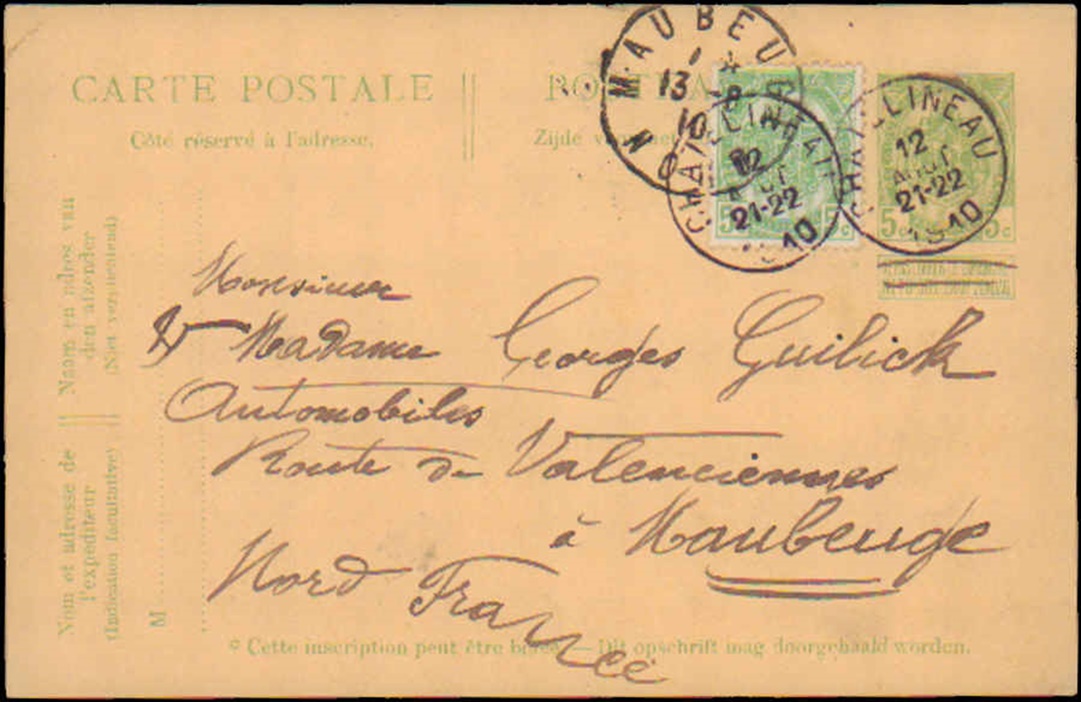 CARTE POSTALE
Côté réservé à l'adresse.
Zijde
MAUBEU
13 -8
10
N
CHATELINEAU
12
21-22
10
CHATELINEAU
12
AOUT
21-22
1910
5c
5c 5c
Monsieur
& Madame Georges Guilick
Automobiles
Route de Valenciennes
à Maubeuge
Nord France
Naam en adres van
den afzender
(Niet vereischend)
Nom et adresse de
l'expéditeur
(Indication facultative)
M
* Cette inscription peut être biffée. — Dit opschrift mag doorgehaald worden.